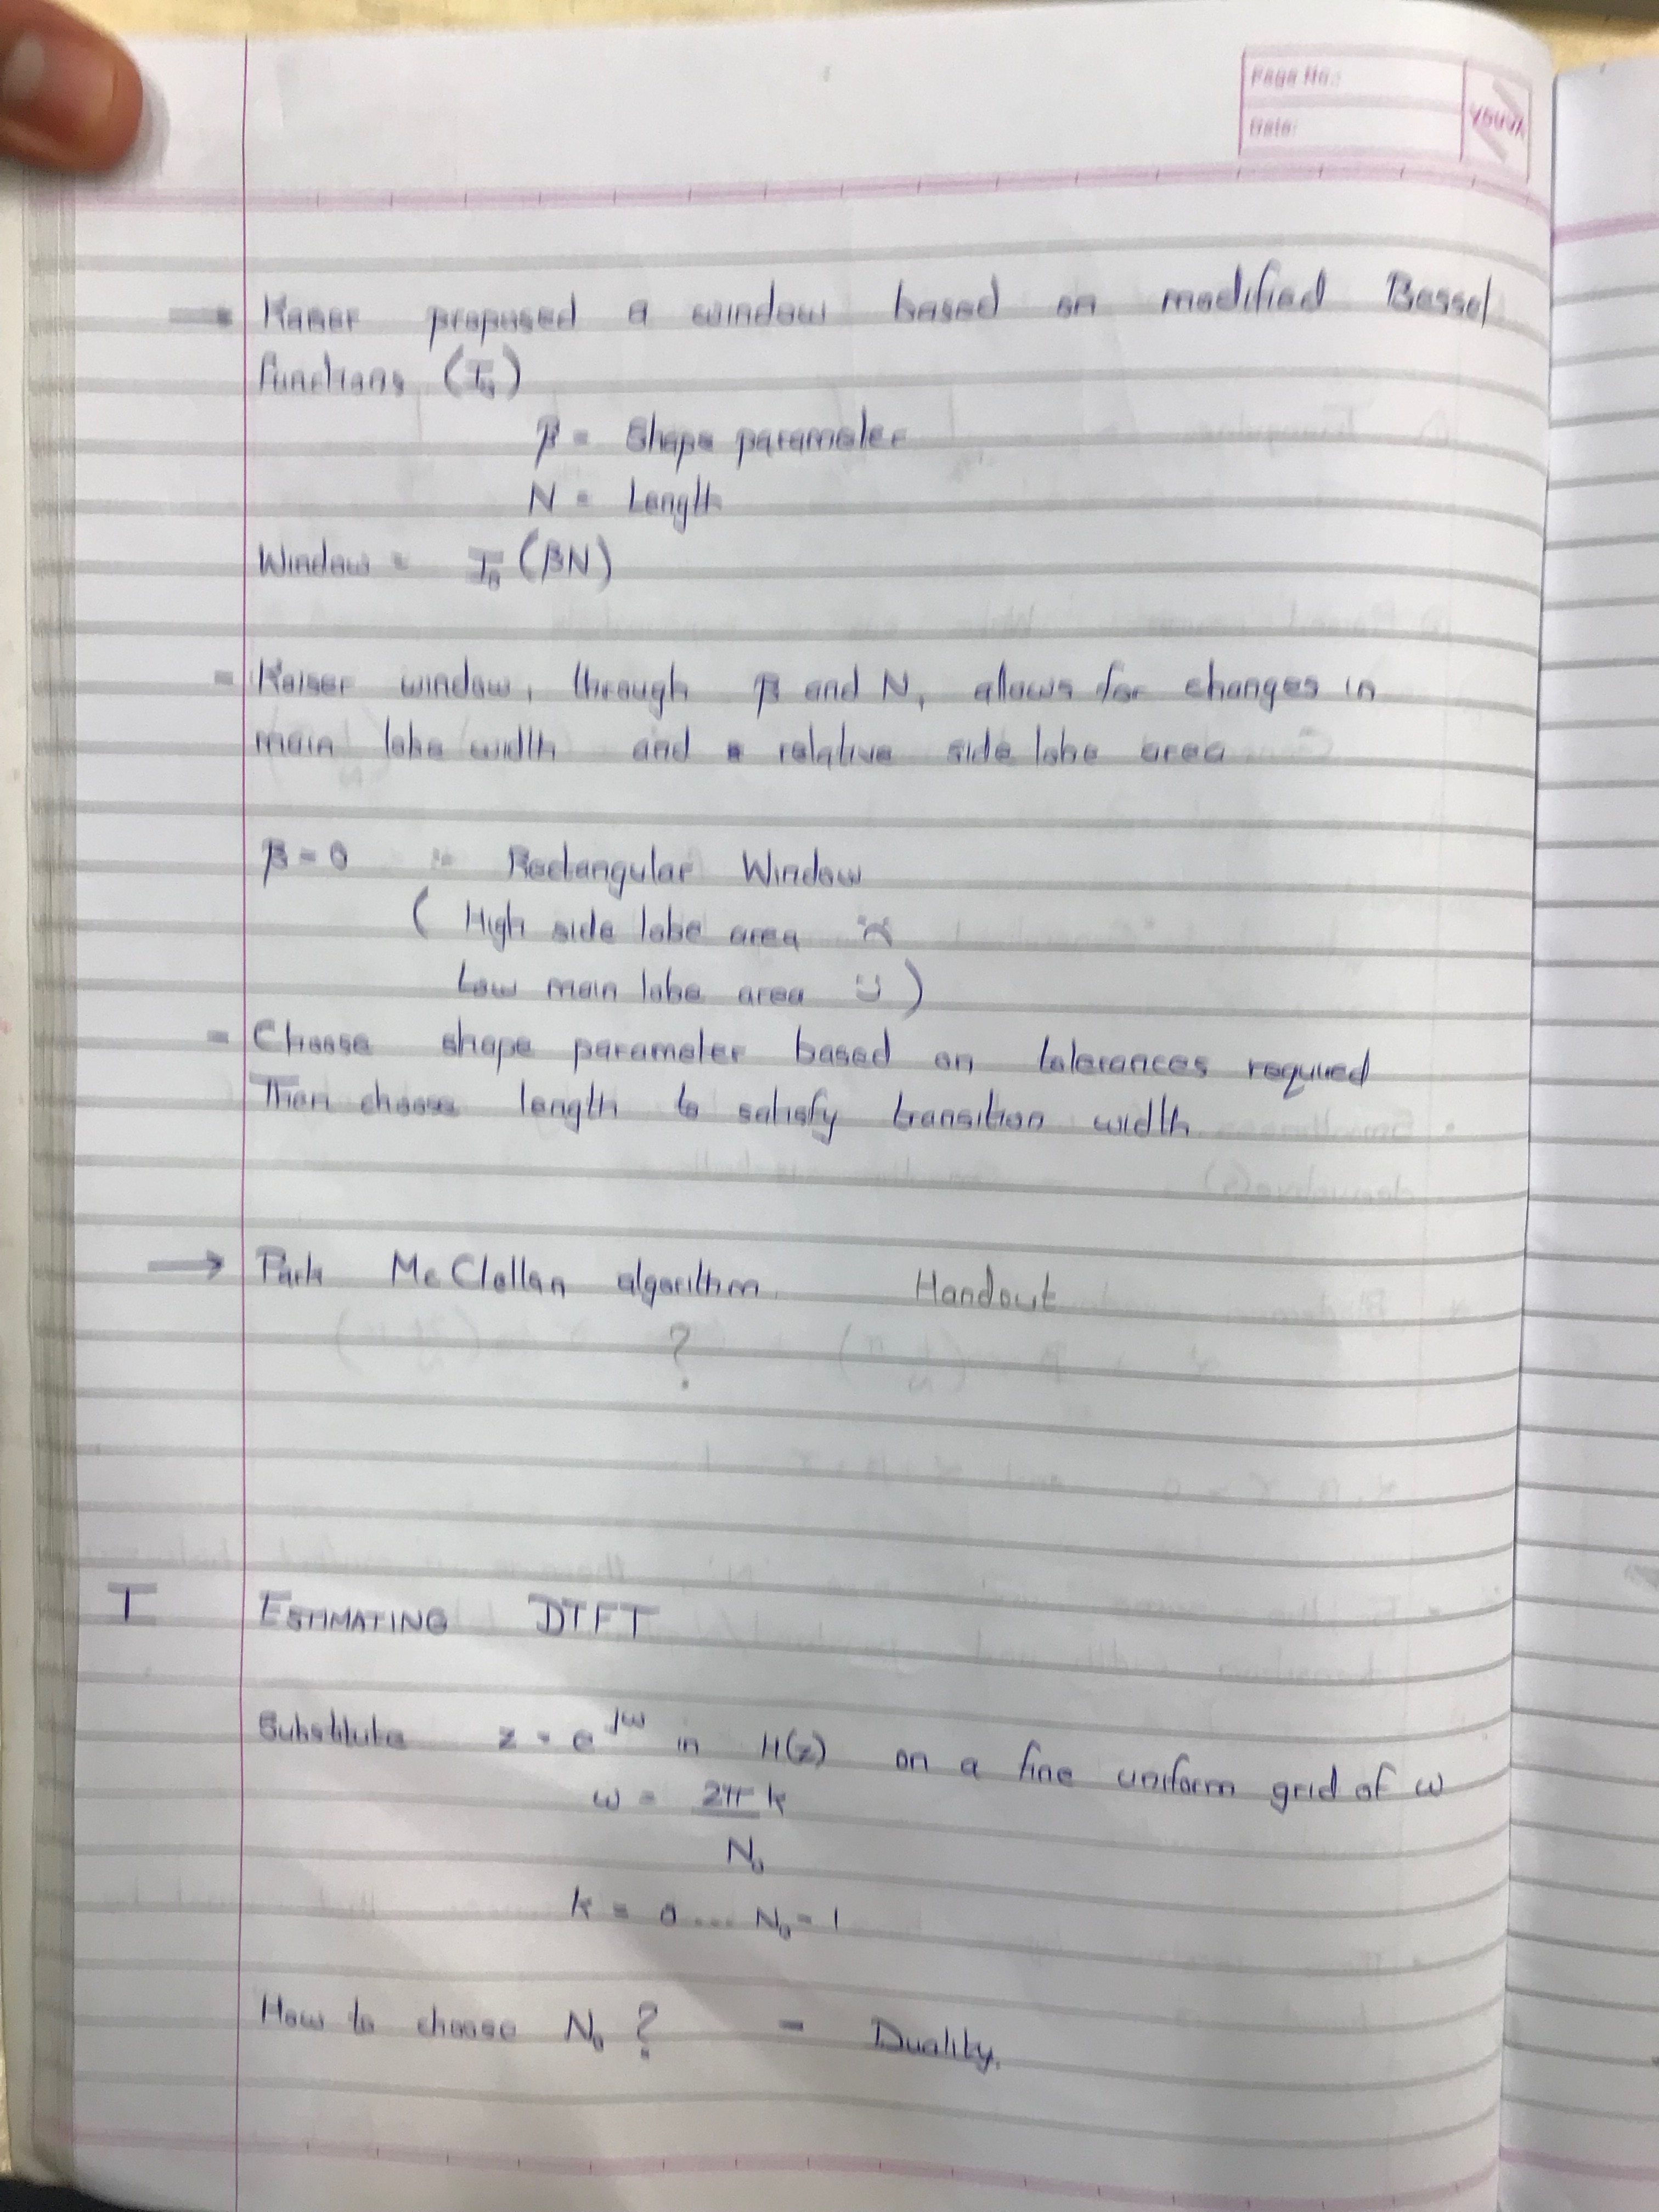 Page No.:
Date:
Youva
→ Kaiser proposed a window based on modified Bessel
functions (I₀)
β = Shape parameter
N = Length
Window = I₀ (βN)
- Kaiser window, through β and N, allows for changes in
main lobe width and relative side lobe area
β = 0 :- Rectangular Window
( High side lobe area :(
Low main lobe area :) )
- Choose shape parameter based on tolerances required
Then choose length to satisfy transition width
→ Park McClellan algorithm Handout
?
I ESTIMATING DTFT
Substitute z = e^jω in H(z) on a fine uniform grid of ω
ω = 2π k
N₀
k = 0 ... N₀-1
How to choose N₀ ? - Duality.